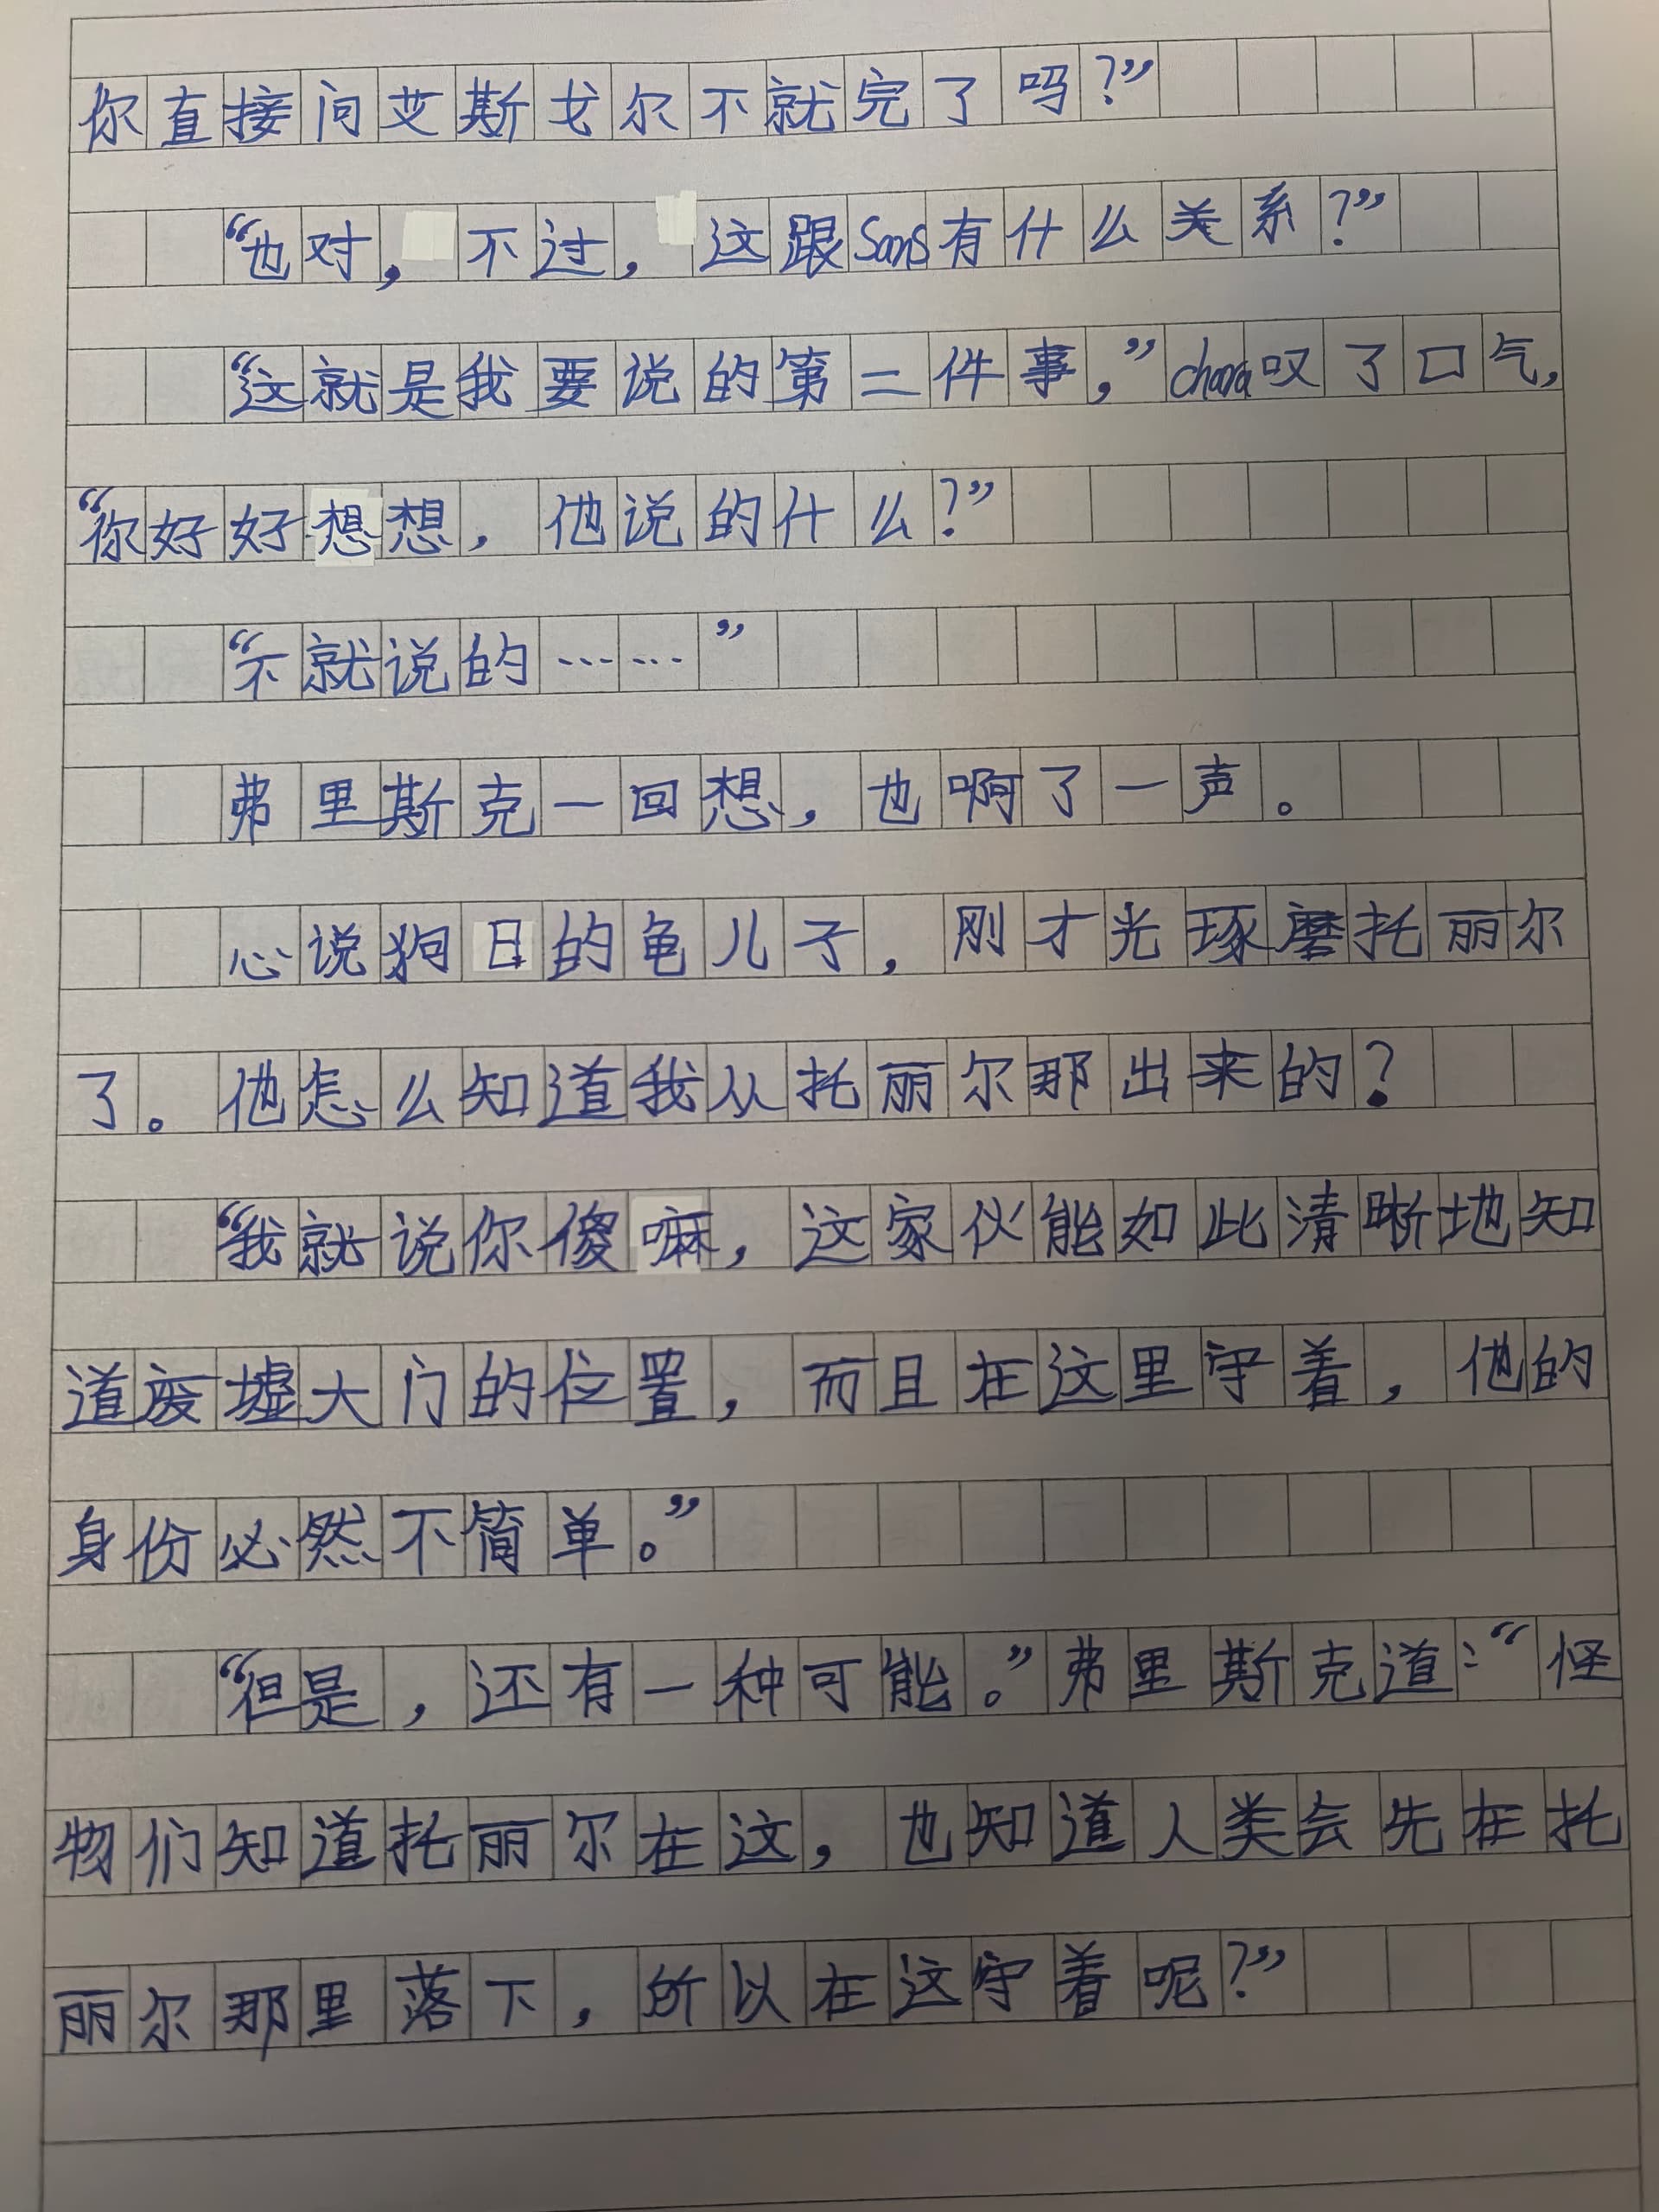 你直接问艾斯戈尔不就完了吗？”
“也对，不过，这跟Sans有什么关系？”
“这就是我要说的第二件事，”chara叹了口气，
“你好好想想，他说的什么？”
“不就说的……”
弗里斯克一回想，也啊了一声。
心说狗日的龟儿子，刚才光琢磨托丽尔
了。他怎么知道我从托丽尔那出来的？
“我就说你傻嘛，这家伙能如此清晰地知
道废墟大门的位置，而且在这里守着，他的
身份必然不简单。”
“但是，还有一种可能。”弗里斯克道：“怪
物们知道托丽尔在这，也知道人类会先在托
丽尔那里落下，所以在这守着呢？”